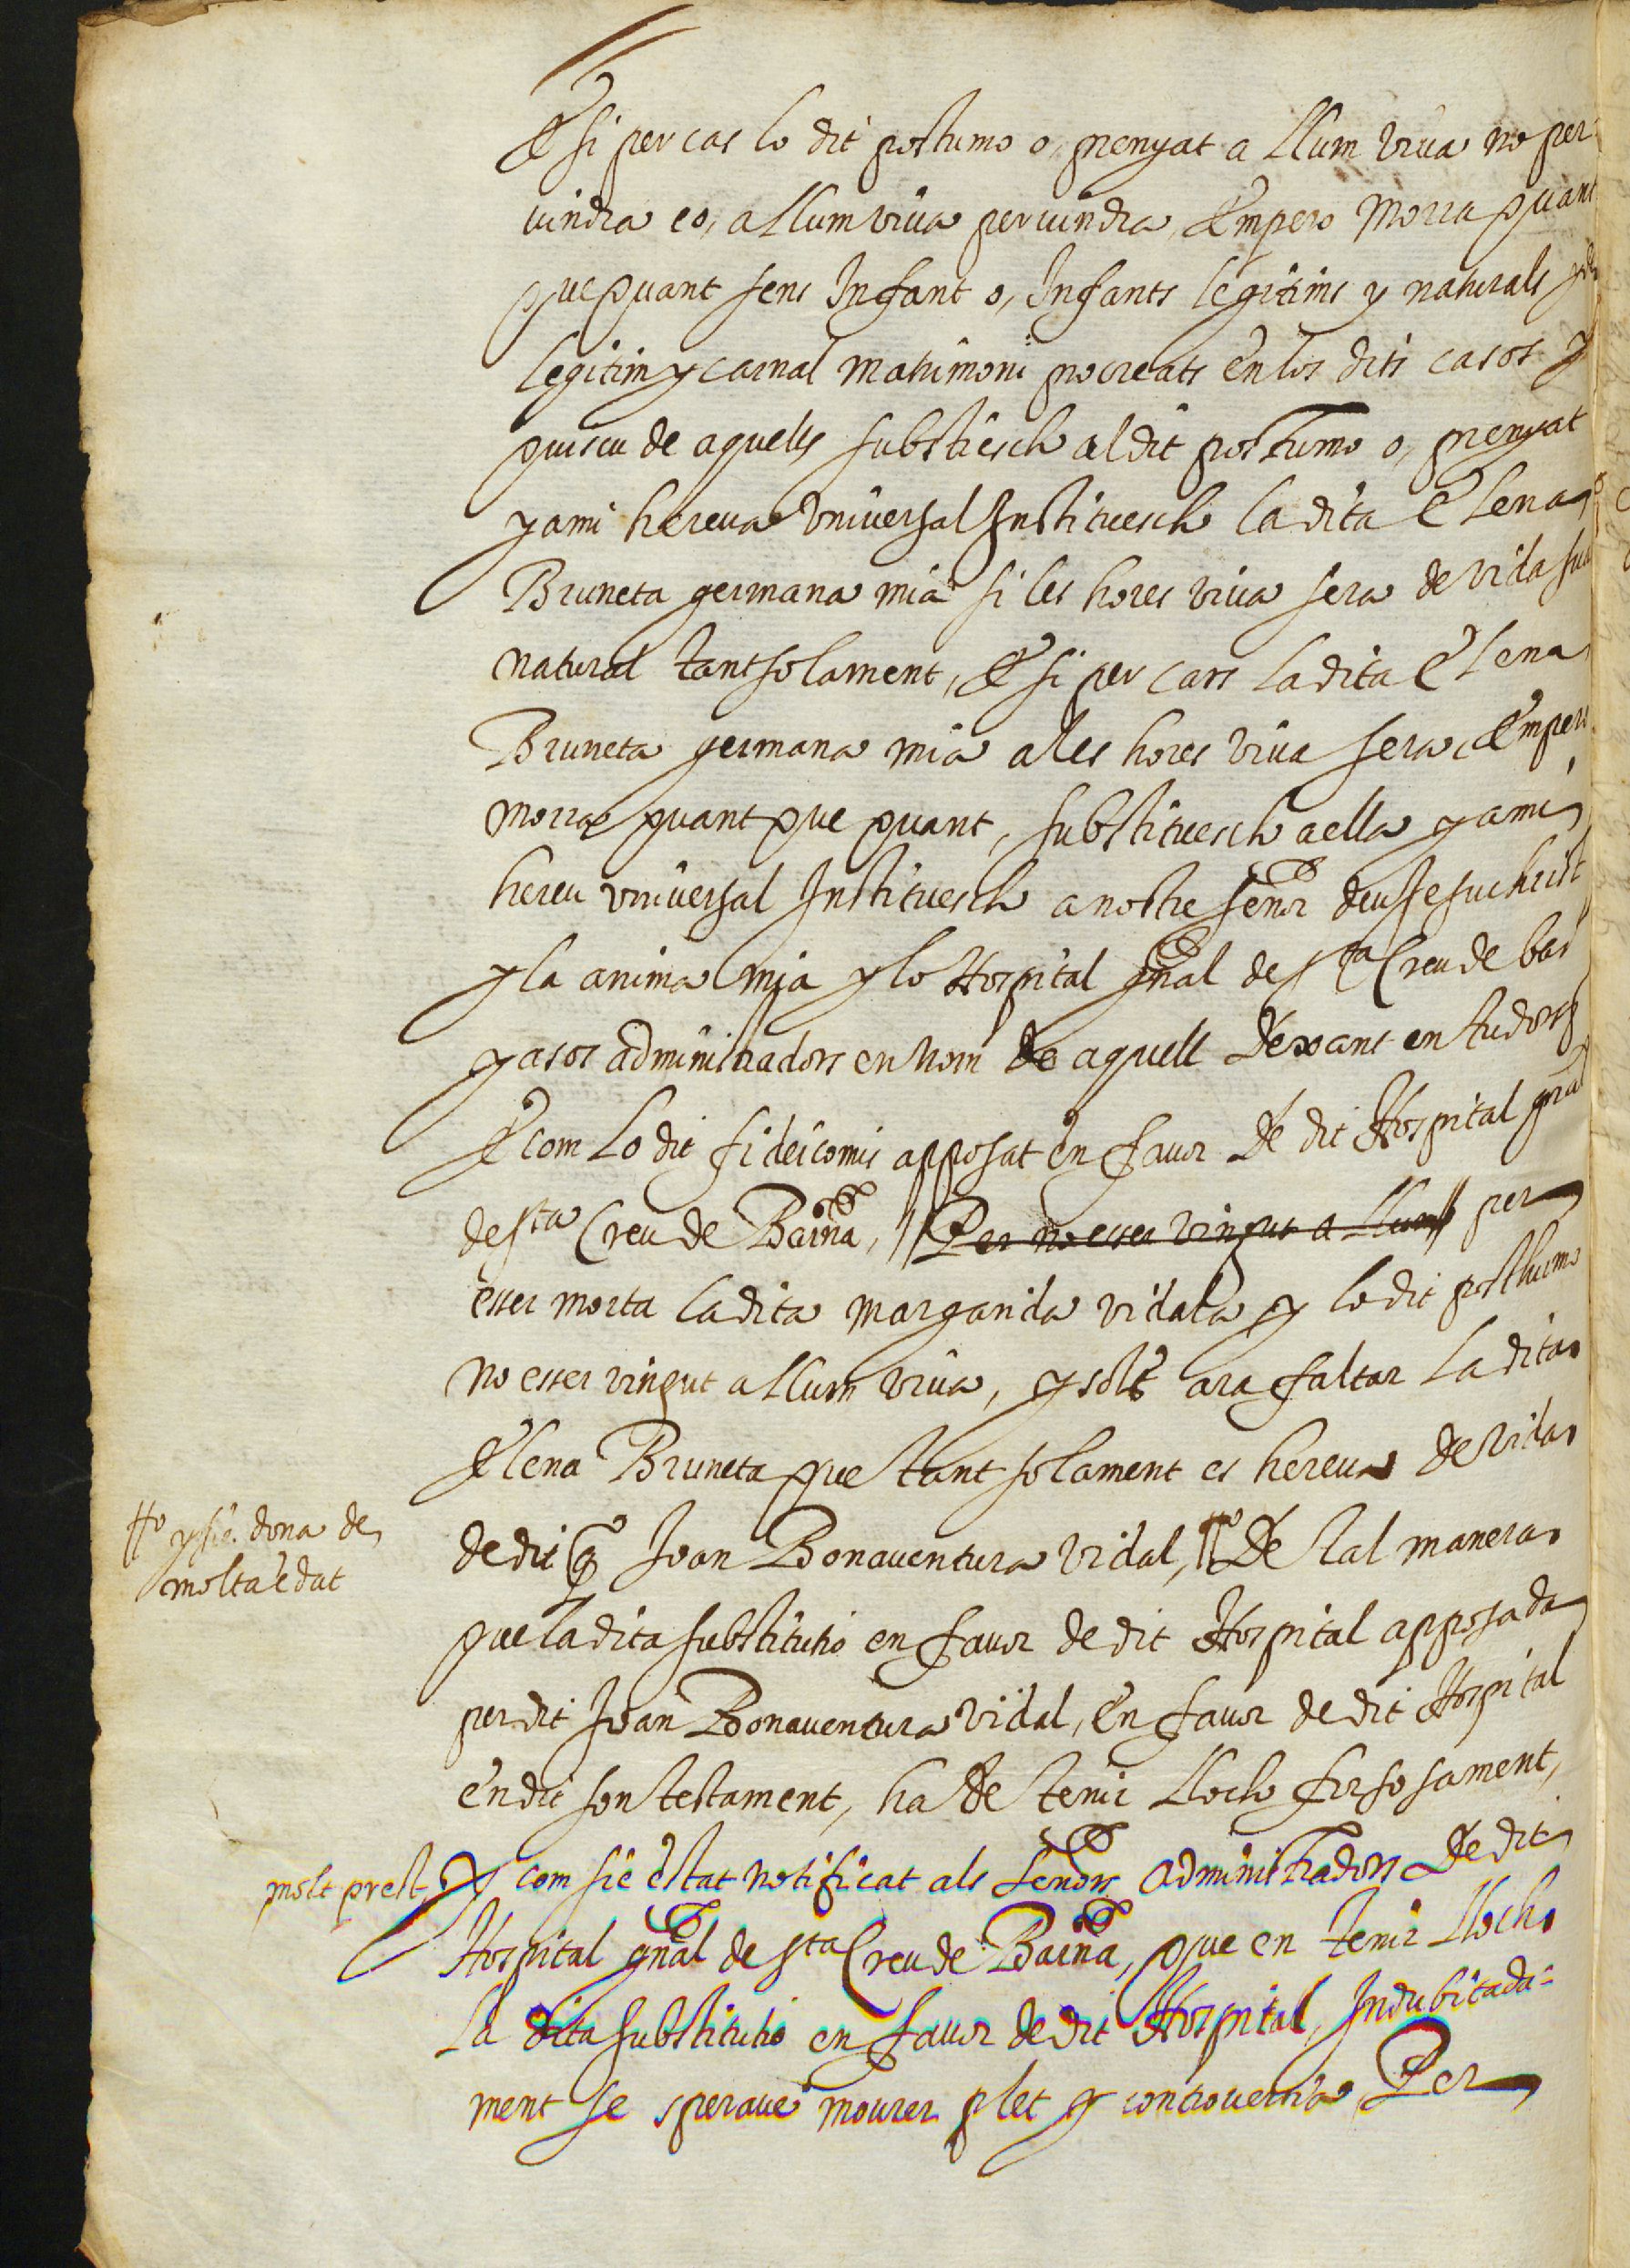 E si per cas lo dit postumo o, prenyat a llum viva no per
vindra eo, a llum viva pervindra, Empero morra quant
que quant sens Infant o, Infants legitims y naturals y de
legitim y carnal matrimoni procreats en los dits casos y
quiscu de aquells substiesch al dit postumo o, prenyat
y a mi hereva universal Instituesch la dita Elena
Bruneta germana mia si les hores viva sera de vida sua
natural tantsolament, E si per cars la dita Elena
Bruneta germana mia a les hores viva sera, Empero
morra quant que quant, substituesch a ella y a mi
hereu universal Instituesch a nostre señor deu Jesuchrist
y la anima mia y lo Hospital gñal de sta Creu de bar
y a sos administradors en nom de aquell dexant en tudors
E com lo dit fideicomis apposat en favor de dit Hospital gñal
de sta Creu de Barña, // Per no esser vingut a llum // per
esser morta la dita margarida vidala y lo dit posthumo
no esser vingut a llum viva, y sols ara faltar la dita
Elena Bruneta que tant solament es hereva de vida
de dit q̃ Joan Bonaventura vidal, // De tal manera
#o y sie. dona de
molta edat
que la dita substitutio en favor de dit Hospital apposada
per dit Joan Bonaventura vidal, en favor de dit Hospital
en dit son testament, ha de tenir lloch forsosament,
molt prest, Y com sie estat notificat als señors administradors de dit
Hospital gñal de sta Creu de Barña, que en tenir lloch
la dita substitutio en favor de dit Hospital, Indubitada-
ment se sperave mourer plet y controversia Per